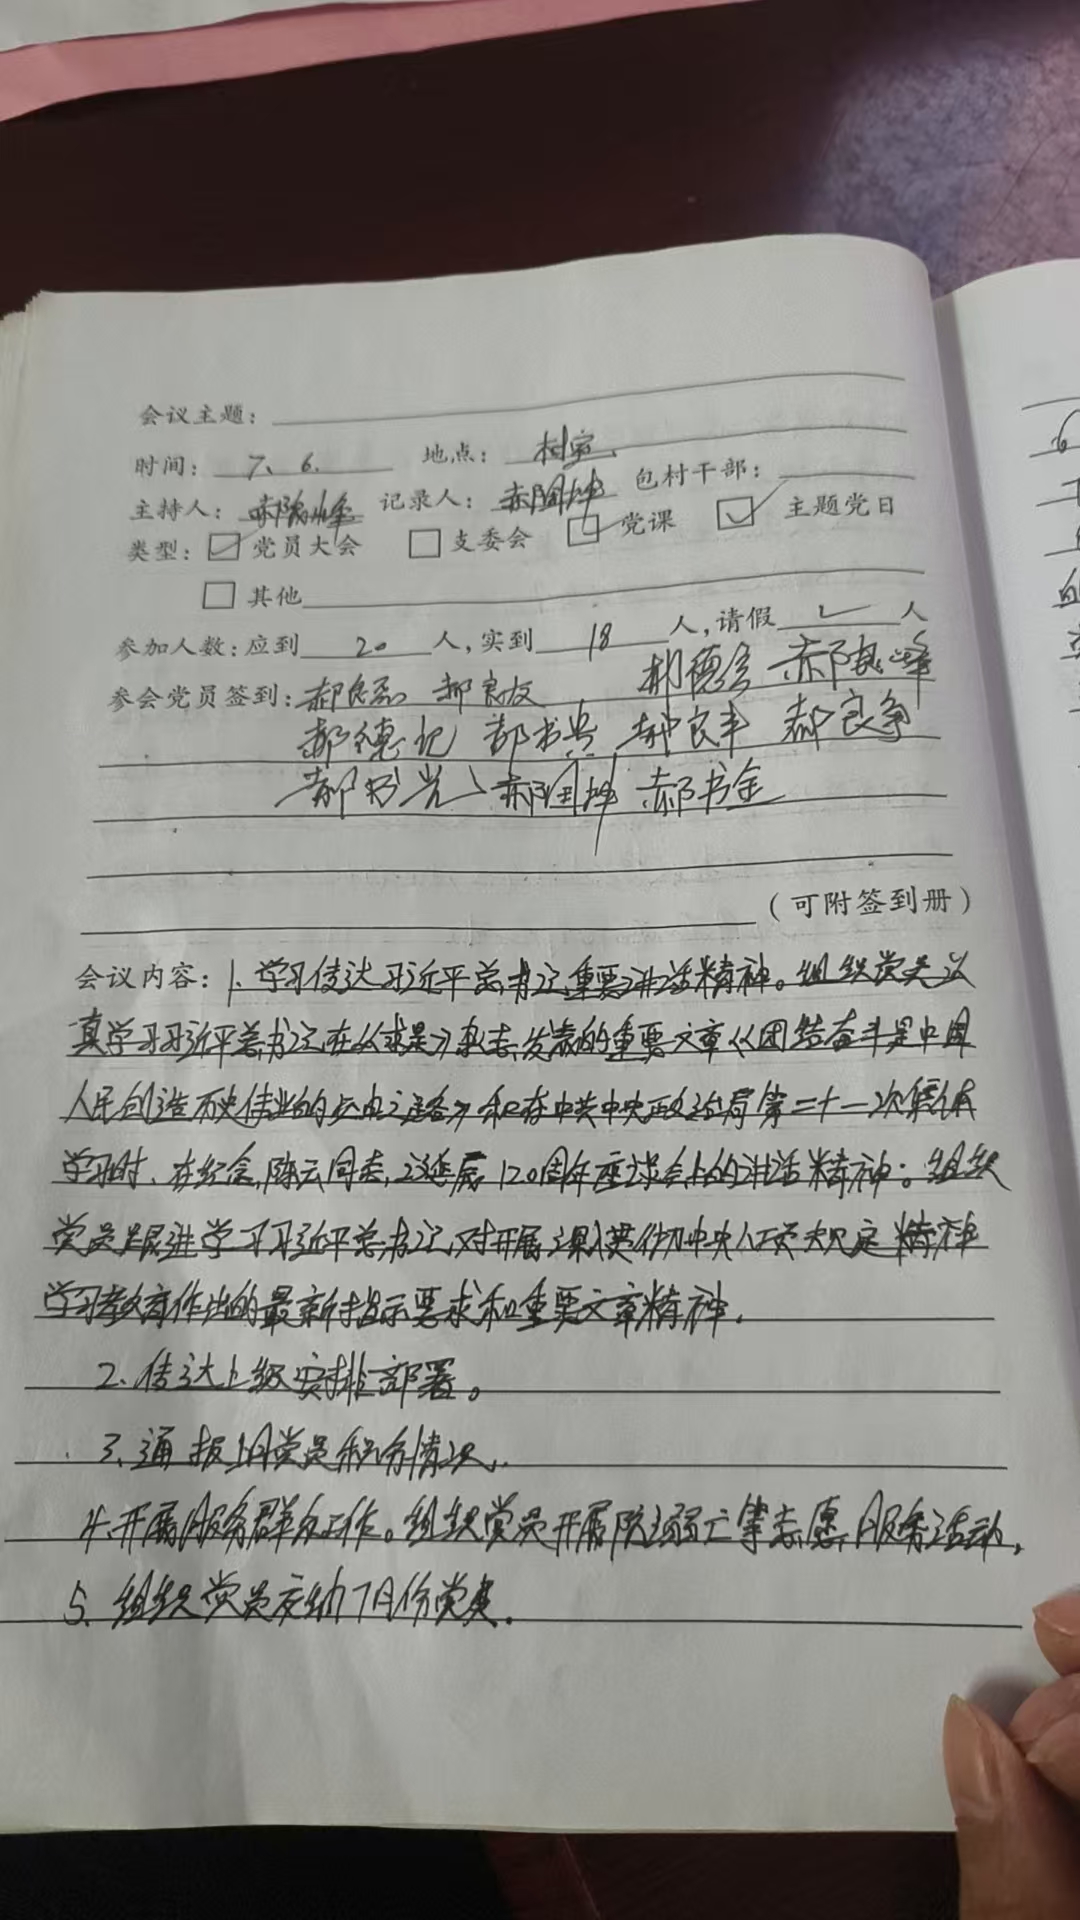 会议主题：
时间：7.6. 地点：村室
主持人：郝良峰 记录人：郝国坤 包村干部：
类型：☑党员大会 □支委会 ☑党课 ☑主题党日
□其他
参加人数：应到 20 人，实到 18 人，请假 2 人
参会党员签到：郝良 郝良友 郝德 郝良峰
郝德记 郝书兴 郝良丰 郝良争
郝书光 郝国坤 郝书金
（可附签到册）
会议内容：1、学习传达习近平总书记重要讲话精神。组织党员认
真学习习近平总书记在《求是》杂志发表的重要文章《团结奋斗是中国
人民创造历史伟业的必由之路》和在中共中央政治局第二十一次集体
学习时、在纪念陈云同志诞辰120周年座谈会上的讲话精神；组织
党员跟进学习习近平总书记对开展深入贯彻中央八项规定精神
学习教育作出的最新指示要求和重要文章精神.
2、传达上级安排部署。
3、通报上月党员积分情况.
4、开展服务群众工作。组织党员开展防溺亡等志愿服务活动.
5、组织党员交纳7月份党费.